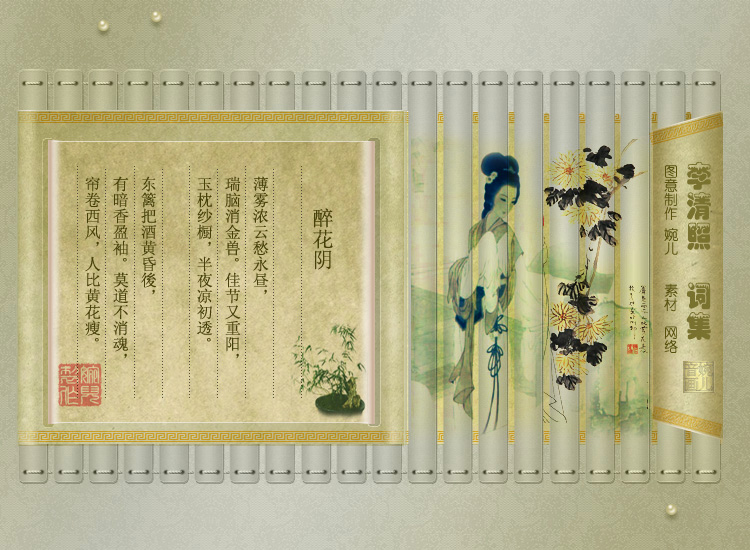 李清照 词集
图意制作 婉儿 素材 网络
醉花阴
薄雾浓云愁永昼，
瑞脑消金兽。佳节又重阳，
玉枕纱橱，半夜凉初透。
东篱把酒黄昏後，
有暗香盈袖。莫道不消魂，
帘卷西风，人比黄花瘦。